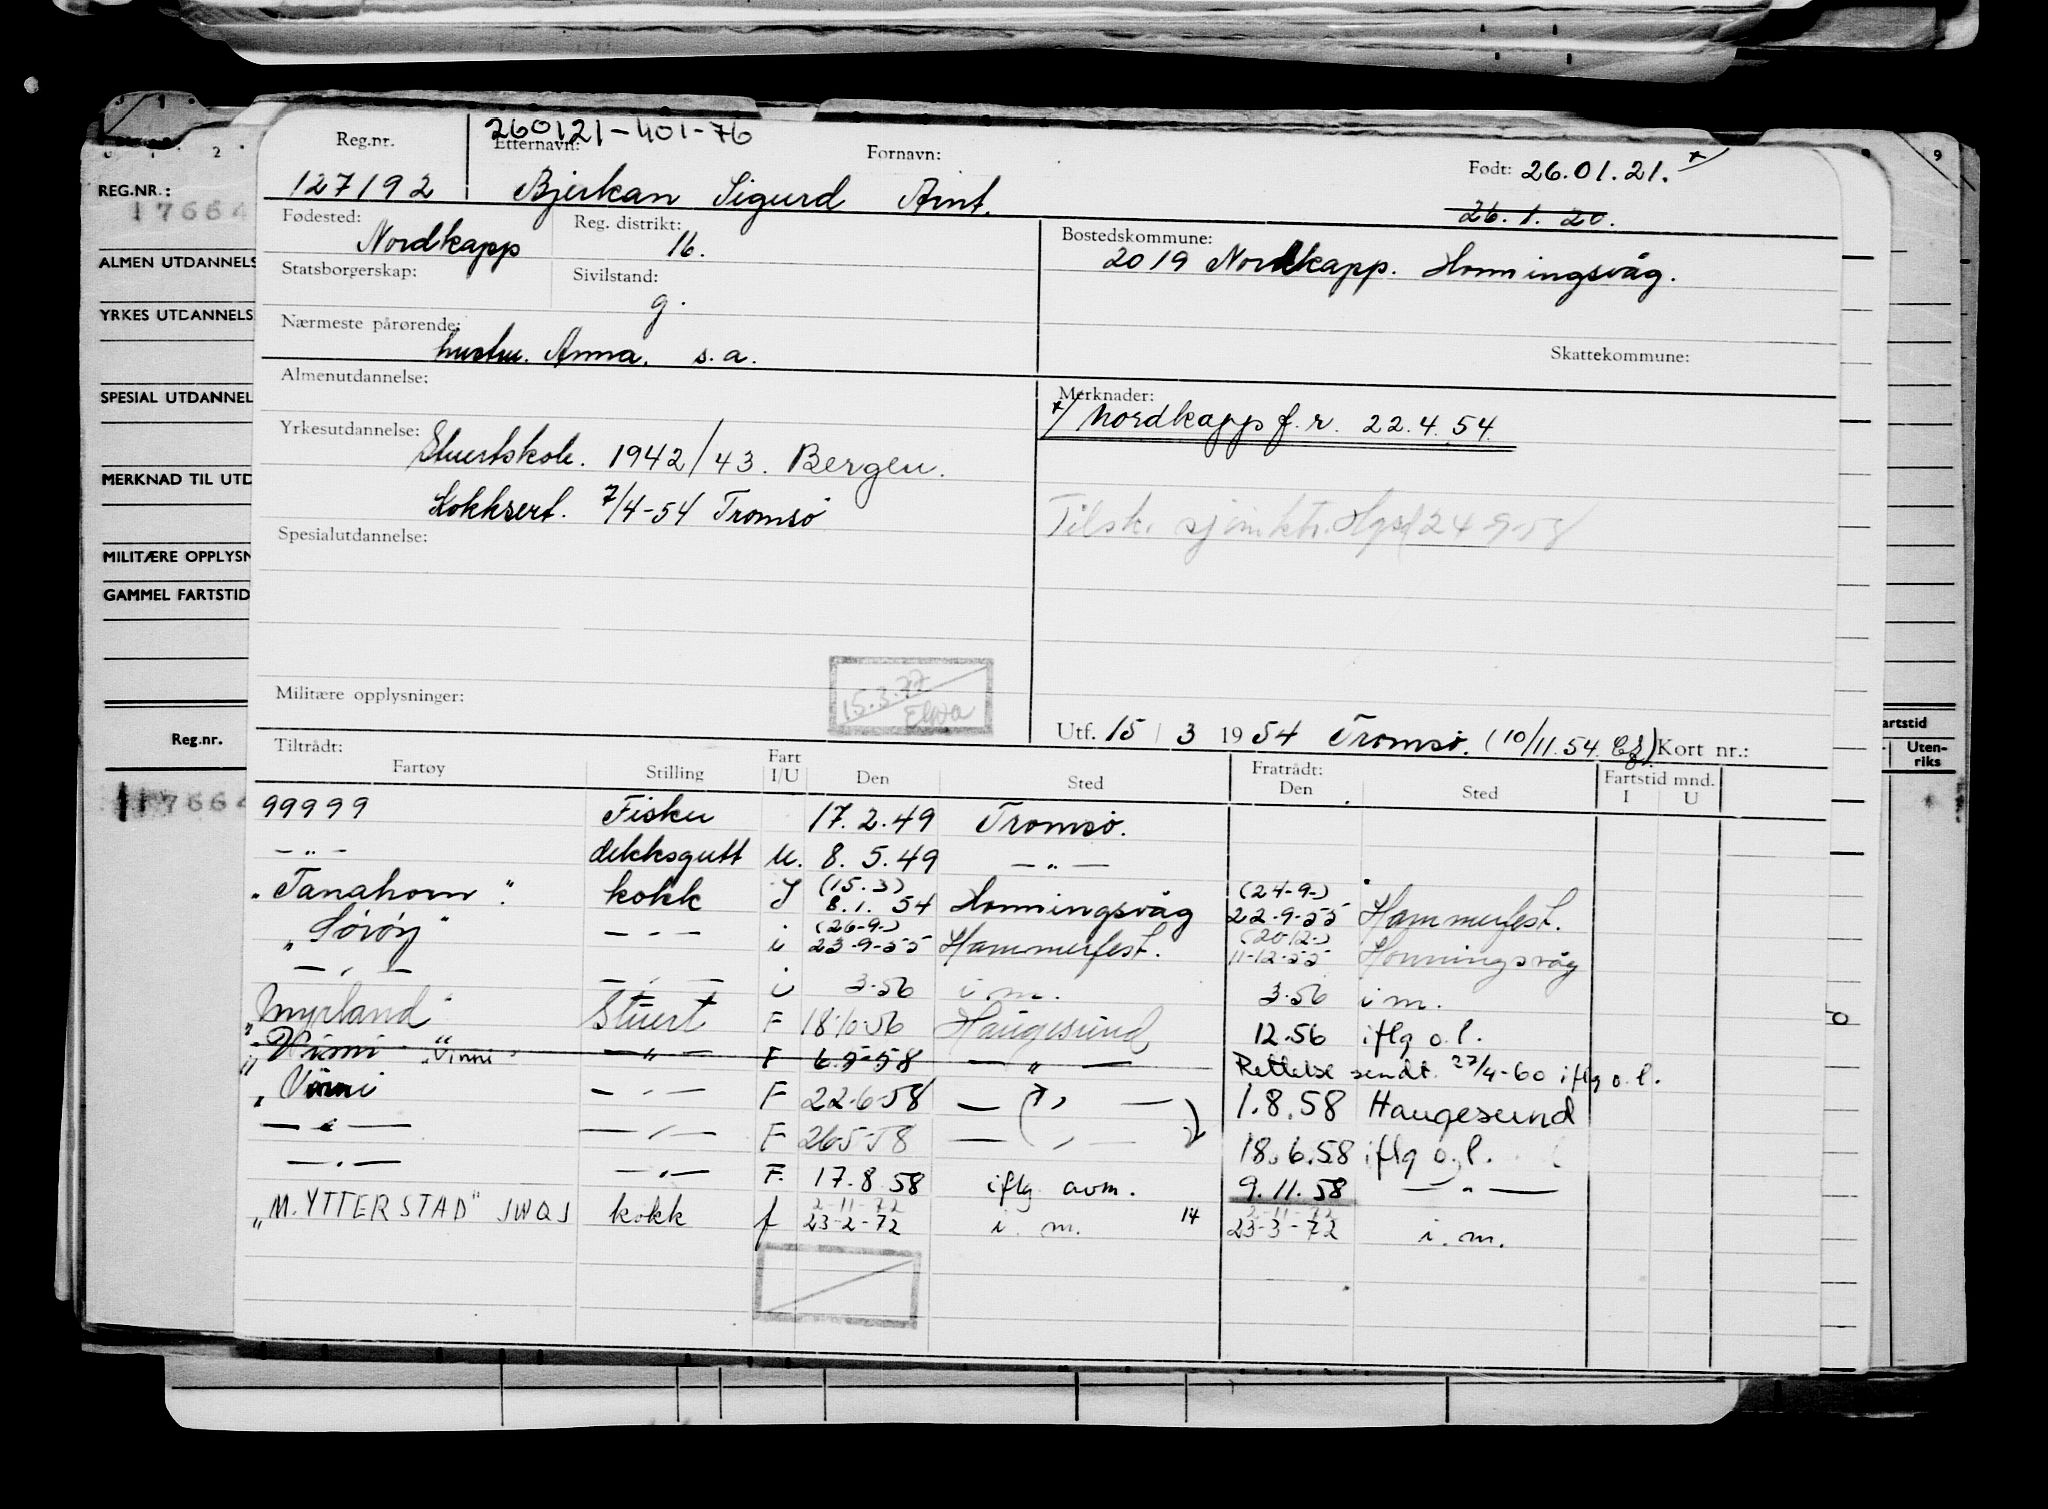 260121-401-76
Reg.nr. Etternavn: Fornavn: Født: 26.01.21. x/
127192 Bjerkan Sigurd Arnt. 26.1.20.
Fødested: Nordkapp Reg. distrikt: 16. Bostedskommune: 2019 Nordkapp. Honningsvåg.
Statsborgerskap: Sivilstand: g.
Nærmeste pårørende: hustru. Anna. s.a. Skattekommune:
Almenutdannelse: Merknader:
x/ Nordkapp f.r. 22.4.54.
Yrkesutdannelse: Stuertskole. 1942/43. Bergen.
Kokksert. 7/4-54 Tromsø
Tilsk. sjømktr. Hgsd 24-9-58
Spesialutdannelse:
15.3.77
Militære opplysninger:
Utf. 15/3 1954 Tromsø. (10/11.54 ) Kort nr.:
Tiltrådt: Fratrådt: Fartstid mnd.
Fartøy Stilling Fart I/U Den Sted Den Sted I U
99999 Fisker 17.2.49 Tromsø.
-"- dekksgutt U. 8.5.49 -"-
(15.3) (24-9-)
"Tanahorn". kokk I 8.1.54 Honningsvåg 22-9-55 Hammerfest.
(26-9-) (20-12-)
"Sørøy" -"- i 23-9-55 Hammerfest. 11-12-55 Honningsvåg
-"- -"- i 3-56 i m. 3-56 i m.
"Myrland" Stuert F 18/10-56 Haugesund 12.56 iflg o.l.
"Vinni" "Vinni" -"- F 6.5-58 -"- Rettelse sendt. 27/4-60 iflg o.l.
"Vinni -"- F 22-6-58 -"- 1.8.58 Haugesund
-"- -"- F 26-5-58 -"- 18.6.58 iflg o.l.
-"- -"- F. 17.8.58 iflg avm. 9.11.58 -"-
2-11-72 2-11-72
"M. YTTERSTAD" JWQJ kokk f 23-2-72 i. m. 14 23-3-72 i. m.
REG.NR.:
17664
ALMEN UTDANNELS
YRKES UTDANNELS
SPESIAL UTDANNEL
MERKNAD TIL UTD
MILITÆRE OPPLYSN
GAMMEL FARTSTID
Reg.nr.
17664
artstid
Uten-
riks
9